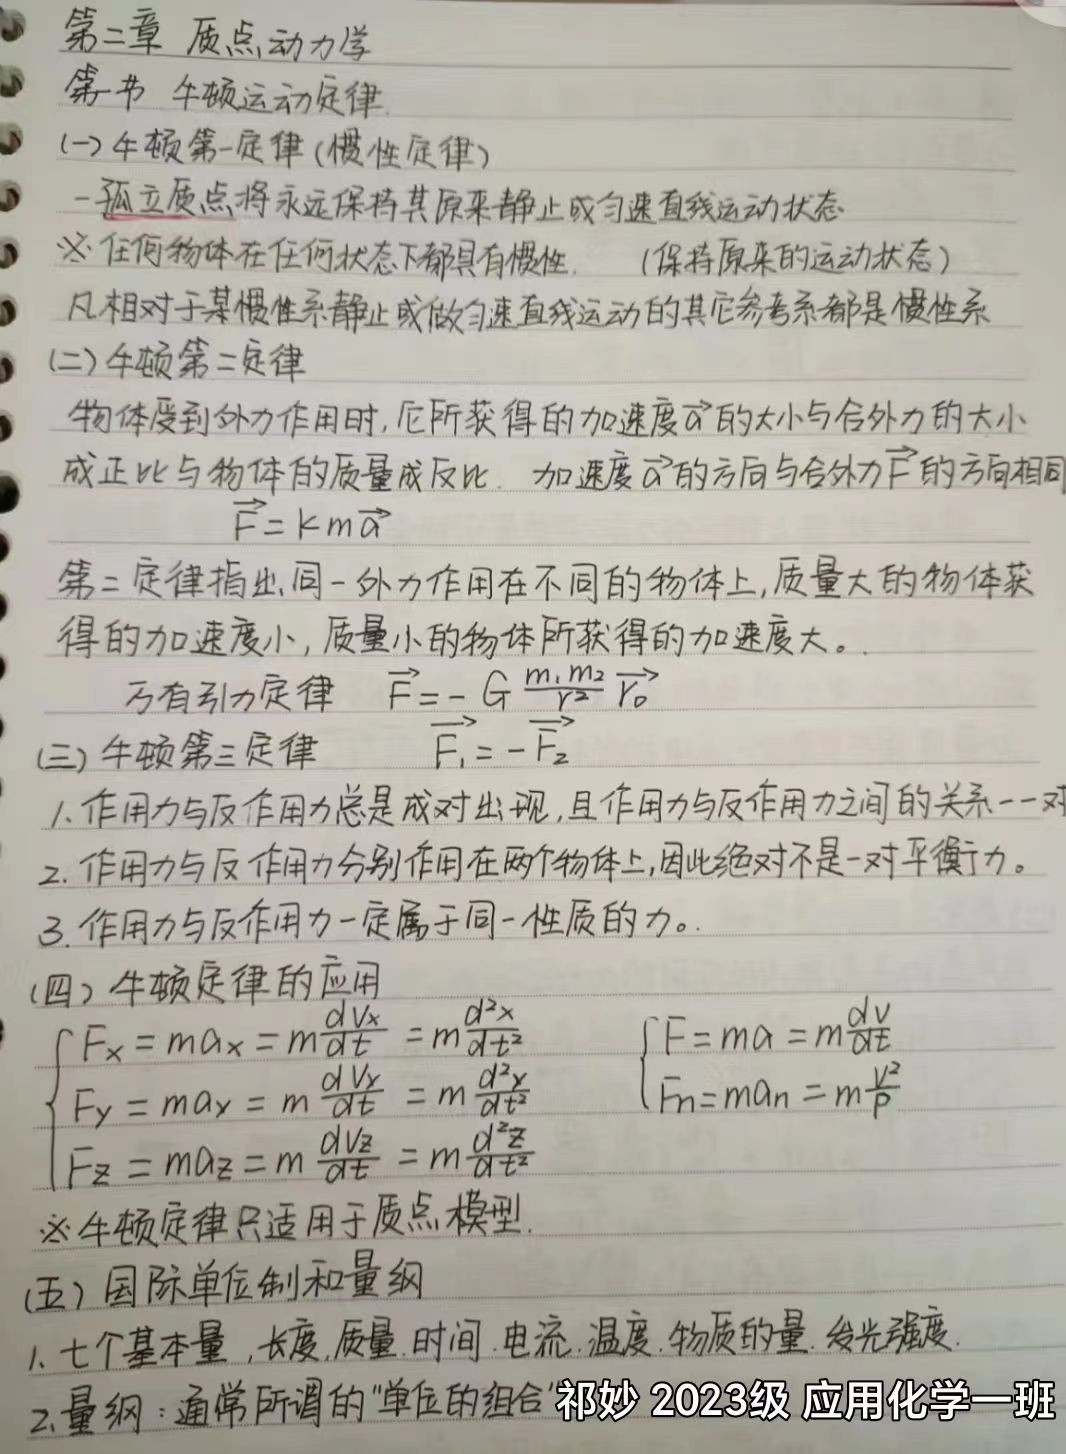 第二章 质点动力学
第一节 牛顿运动定律.
(一)牛顿第一定律(惯性定律)
一孤立质点将永远保持其原来静止或匀速直线运动状态
※任何物体在任何状态下都具有惯性. (保持原来的运动状态)
凡相对于某惯性系静止或做匀速直线运动的其它参考系都是惯性系
(二)牛顿第二定律
物体受到外力作用时,它所获得的加速度a⃗的大小与合外力的大小
成正比与物体的质量成反比. 加速度a⃗的方向与合外力F⃗的方向相同
F⃗=kma⃗
第二定律指出,同一外力作用在不同的物体上,质量大的物体获
得的加速度小,质量小的物体所获得的加速度大。
万有引力定律 F⃗=-G m₁m₂/r² r₀⃗
(三)牛顿第三定律 F₁⃗=-F₂⃗
1.作用力与反作用力总是成对出现,且作用力与反作用力之间的关系一一对
2.作用力与反作用力分别作用在两个物体上,因此绝对不是一对平衡力。
3.作用力与反作用力一定属于同一性质的力。
(四)牛顿定律的应用
Fx=max=m dVx/dt =m d²x/dt² F=ma=m dv/dt
Fy=may=m dVy/dt =m d²y/dt² Fn=man=m v²/ρ
Fz=maz=m dVz/dt =m d²z/dt²
※牛顿定律只适用于质点模型.
(五)国际单位制和量纲
1.七个基本量,长度,质量.时间.电流.温度.物质的量.发光强度.
2.量纲:通常所谓的"单位的组合"
祁妙 2023级 应用化学一班